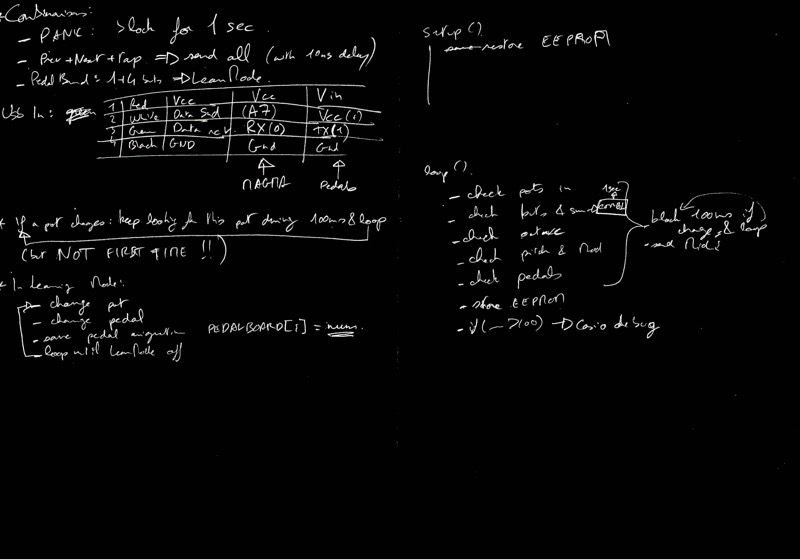 * Combinaisons:
- PANIC: block for 1 sec.
- Prev + Next + Tap => send all (with 10ms delay)
- PedalBoard: 1+4 buts => LearnMode.
USB In:
1 Red Vcc Vcc Vin
2 White Data Snd (A7) Vcc (1)
3 Green Data rcv. RX(0) TX(1)
4 Black GND Gnd Gnd
MAGMA Pedals
* If a pot changes: keep looking for this pot during 100ms & loop
(but NOT FIRST TIME !!)
* In Learning Mode:
- change pot
- change pedal
- save pedal
- loop until LearnMode off
PEDALBOARD[i] = num.
setup()
restore EEPROM
loop()
- check pots in
1sec
- check buts &
- check octave
- check pitch & Mod
- check pedals
block 100ms if
change, & loop
- send Midi
- store EEPROM
- if (— > 100) -> Casio debug